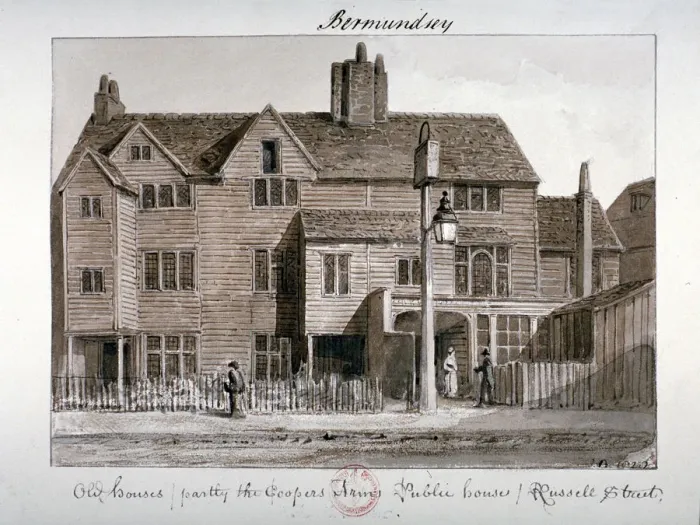 Bermundsey
Old houses / partly the Coopers Arms Public house / Russell Street.